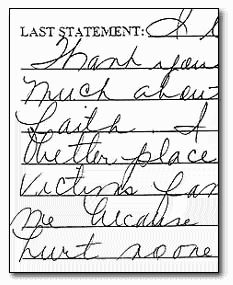 LAST STATEMENT: I
Thank you
much about
faith. I
better place
victims fam
me because
hurt no one